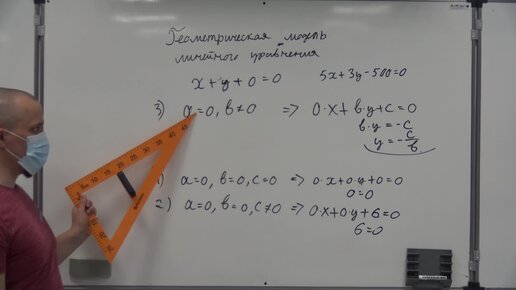 Геометрическая модль
линейного уравнения
x + y + 0 = 0
5x + 3y - 500 = 0
3) a = 0, b ≠ 0 => 0·x + b·y + c = 0
b·y = -c
y = -c/b
1) a = 0, b = 0, c = 0 => 0·x + 0·y + 0 = 0
0 = 0
2) a = 0, b = 0, c ≠ 0 => 0·x + 0·y + 6 = 0
6 = 0